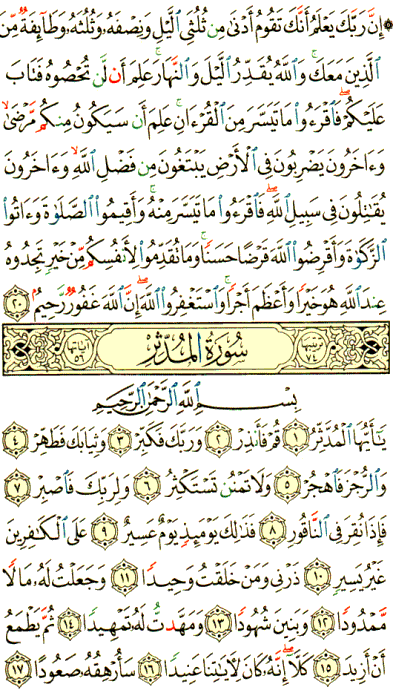 ۞ إِنَّ رَبَّكَ يَعْلَمُ أَنَّكَ تَقُومُ أَدْنَىٰ مِن ثُلُثَيِ ٱلَّيْلِ وَنِصْفَهُۥ وَثُلُثَهُۥ وَطَآئِفَةٌ مِّنَ
ٱلَّذِينَ مَعَكَ ۚ وَٱللَّهُ يُقَدِّرُ ٱلَّيْلَ وَٱلنَّهَارَ ۚ عَلِمَ أَن لَّن تُحْصُوهُ فَتَابَ
عَلَيْكُمْ ۖ فَٱقْرَءُوا۟ مَا تَيَسَّرَ مِنَ ٱلْقُرْءَانِ ۚ عَلِمَ أَن سَيَكُونُ مِنكُم مَّرْضَىٰ ۙ
وَءَاخَرُونَ يَضْرِبُونَ فِى ٱلْأَرْضِ يَبْتَغُونَ مِن فَضْلِ ٱللَّهِ ۙ وَءَاخَرُونَ
يُقَـٰتِلُونَ فِى سَبِيلِ ٱللَّهِ ۖ فَٱقْرَءُوا۟ مَا تَيَسَّرَ مِنْهُ ۚ وَأَقِيمُوا۟ ٱلصَّلَوٰةَ وَءَاتُوا۟
ٱلزَّكَوٰةَ وَأَقْرِضُوا۟ ٱللَّهَ قَرْضًا حَسَنًا ۚ وَمَا تُقَدِّمُوا۟ لِأَنفُسِكُم مِّنْ خَيْرٍ تَجِدُوهُ
عِندَ ٱللَّهِ هُوَ خَيْرًا وَأَعْظَمَ أَجْرًا ۚ وَٱسْتَغْفِرُوا۟ ٱللَّهَ ۖ إِنَّ ٱللَّهَ غَفُورٌ رَّحِيمٌۢ ٢٠
ترتيبها ٧٤ سُورَةُ المُدَّثِّرِ آياتها ٥٦
بِسْمِ ٱللَّهِ ٱلرَّحْمَـٰنِ ٱلرَّحِيمِ
يَـٰٓأَيُّهَا ٱلْمُدَّثِّرُ ١ قُمْ فَأَنذِرْ ٢ وَرَبَّكَ فَكَبِّرْ ٣ وَثِيَابَكَ فَطَهِّرْ ٤
وَٱلرُّجْزَ فَٱهْجُرْ ٥ وَلَا تَمْنُن تَسْتَكْثِرُ ٦ وَلِرَبِّكَ فَٱصْبِرْ ٧
فَإِذَا نُقِرَ فِى ٱلنَّاقُورِ ٨ فَذَٰلِكَ يَوْمَئِذٍ يَوْمٌ عَسِيرٌ ٩ عَلَى ٱلْكَـٰفِرِينَ
غَيْرُ يَسِيرٍ ١٠ ذَرْنِى وَمَنْ خَلَقْتُ وَحِيدًا ١١ وَجَعَلْتُ لَهُۥ مَالًا
مَّمْدُودًا ١٢ وَبَنِينَ شُهُودًا ١٣ وَمَهَّدتُّ لَهُۥ تَمْهِيدًا ١٤ ثُمَّ يَطْمَعُ
أَنْ أَزِيدَ ١٥ كَلَّآ ۖ إِنَّهُۥ كَانَ لِـَٔايَـٰتِنَا عَنِيدًا ١٦ سَأُرْهِقُهُۥ صَعُودًا ١٧